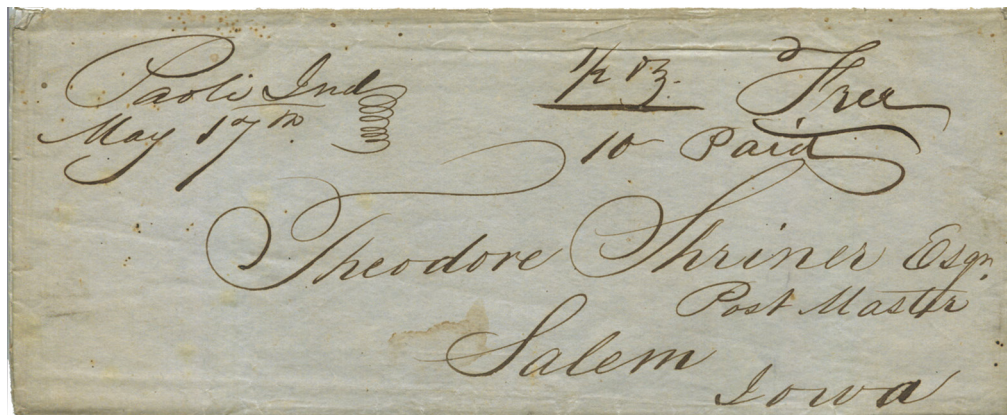 Paoli Ind
May 17th
1/2 oz.
Free
10 Paid
Theodore Shriner Esqr.
Post Master
Salem
Iowa